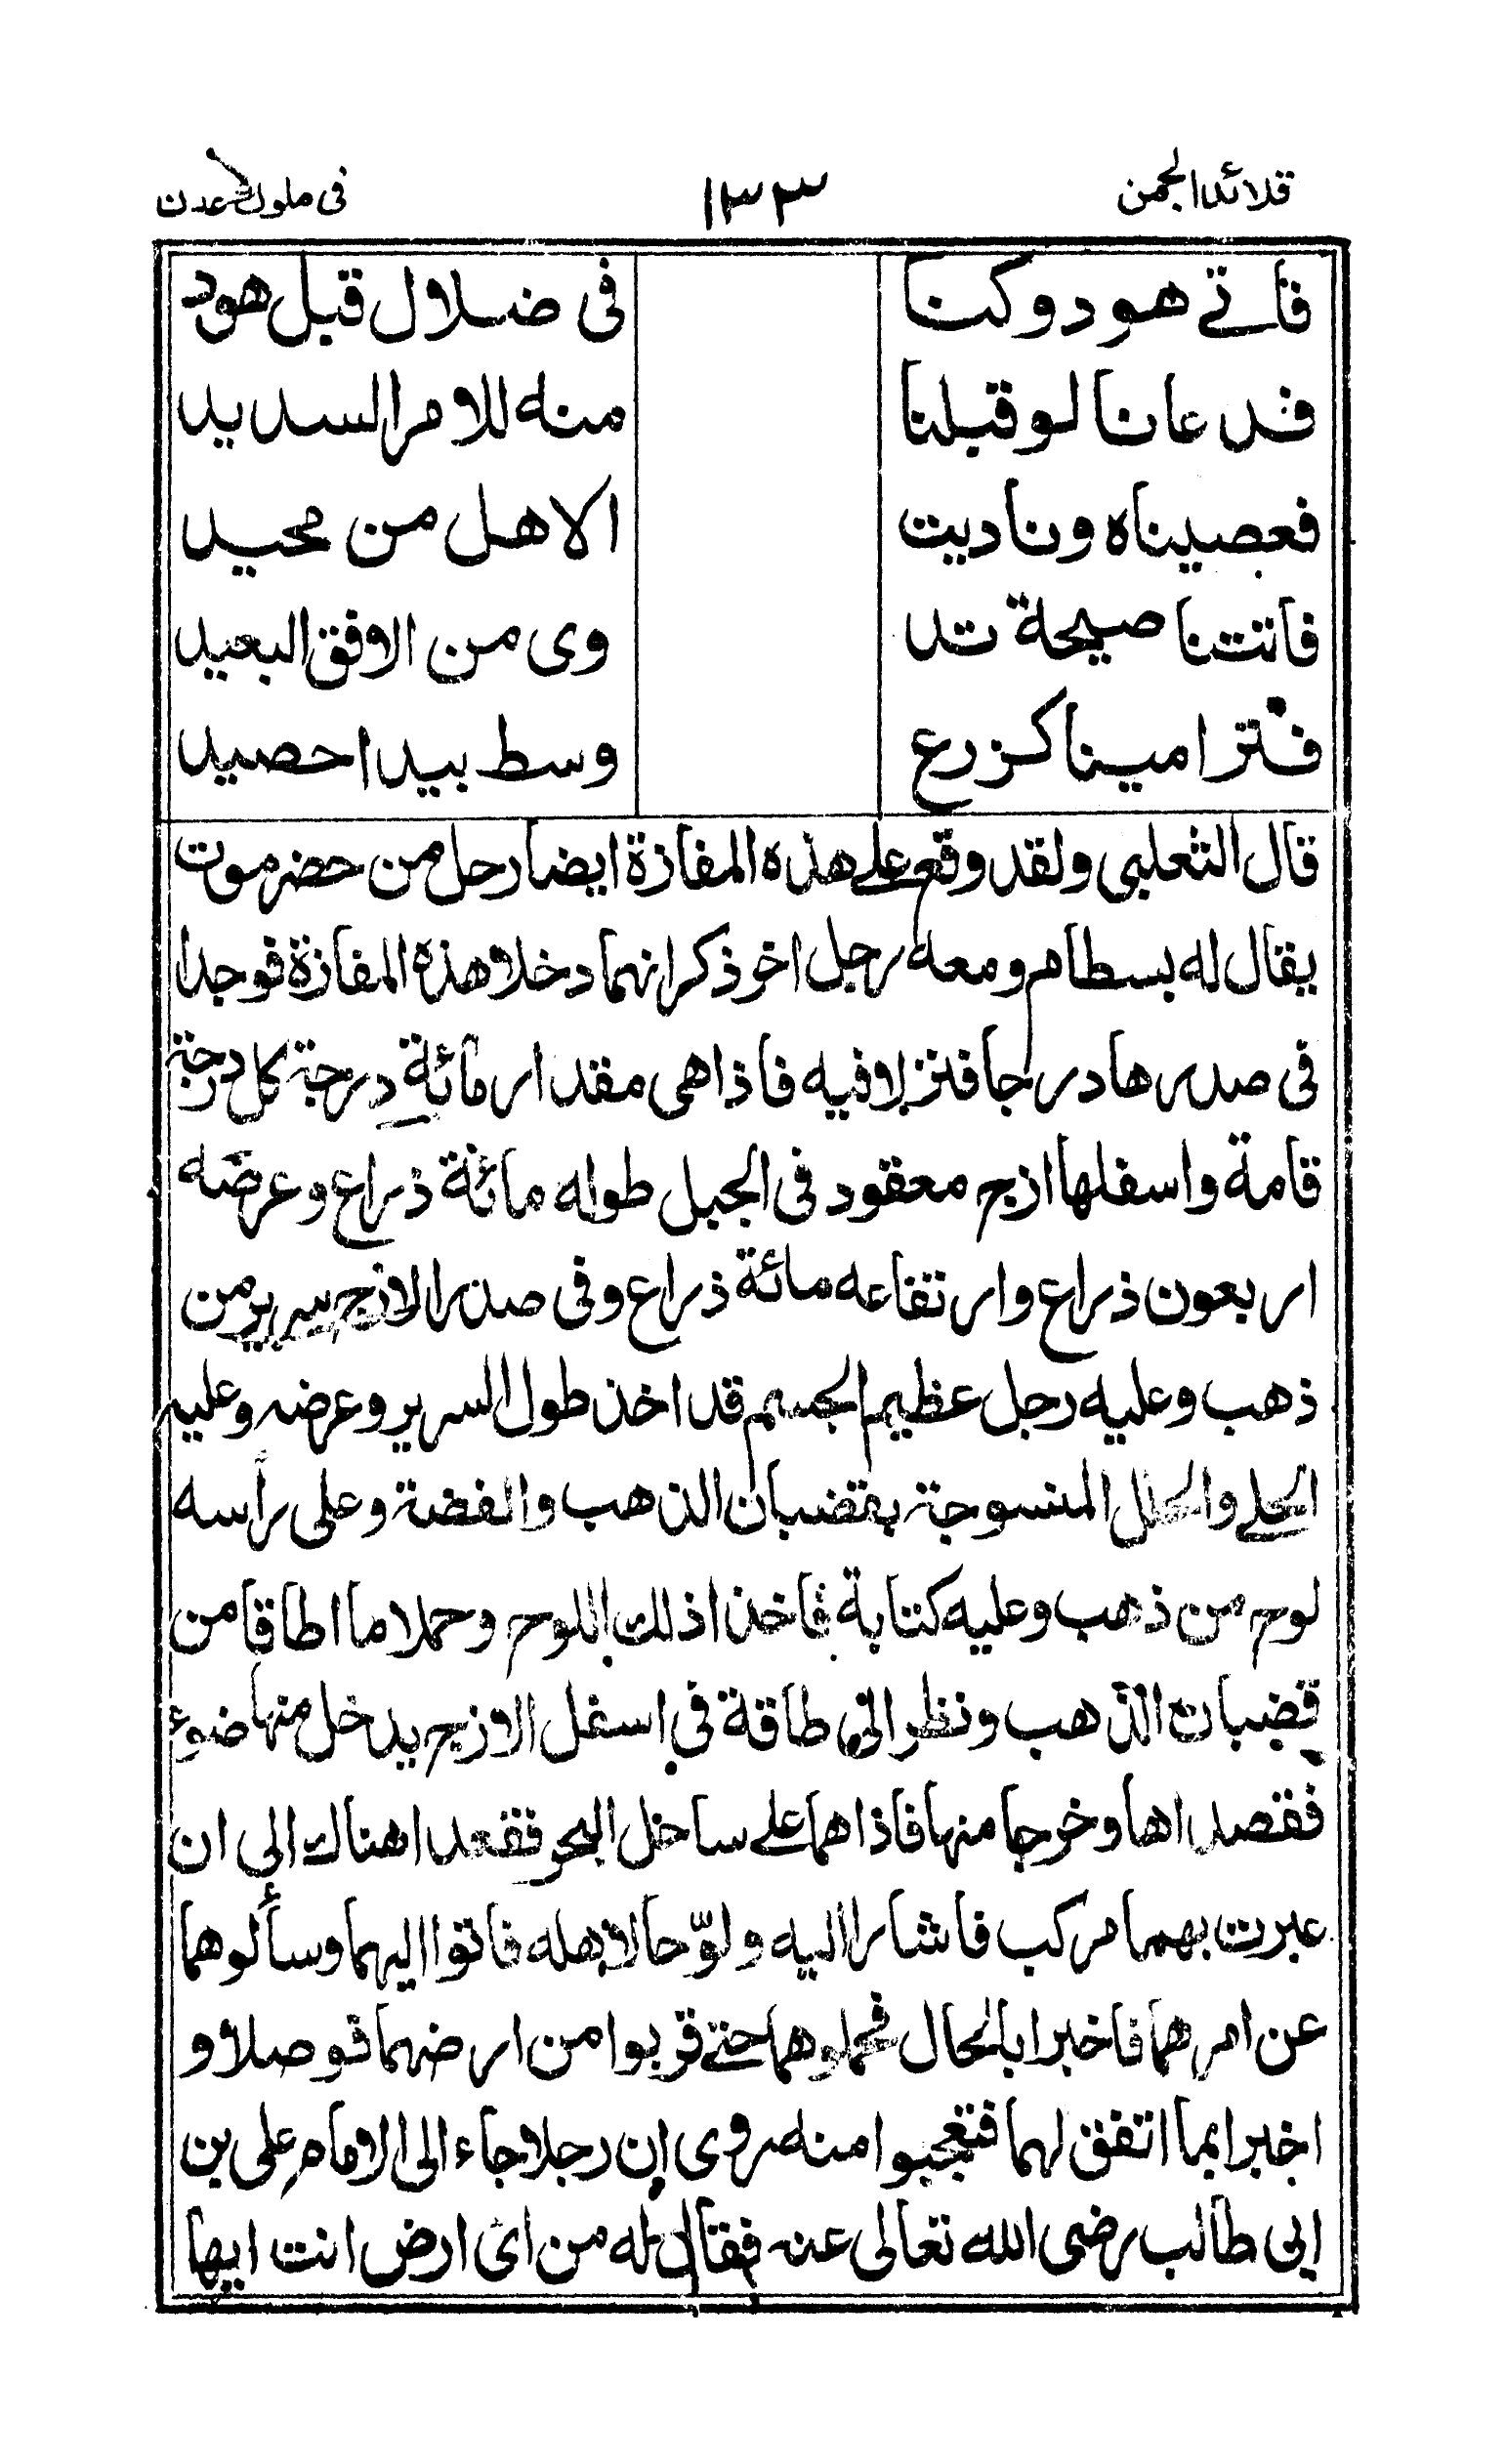 قلائد الجمن ١٣٣ فى ملوك عدن
فاتے هود وكنا فى ضلال قبل هود
فدعانا لو قبلنا منه للامر السديد
فعصيناه وناديت الا هل من محيد
فاتتنا صيحة تد وى من الافق البعيد
فترامينا كزرع وسط بيدا حصيد
قال الثعلبى ولقد وقع علے هذه المفازة ايضا رحل من حضرموت
يقال له بسطام ومعه رجل اخر ذكر انهما دخلا هذه المفازة فوجدا
فى صدرها درجا فنزلا فيه فاذا هى مقدار مائة درجة كل درجة
قامة واسفلها ازج معقود فى الجبل طوله مائة ذراع وعرضه
اربعون ذراع وارتفاعه مائة ذراع وفى صدر الازج سرير من
ذهب وعليه رجل عظيم الجسم قد اخذ طول السرير وعرضه وعليه
الحلے والحلل المنسوجة بقضبان الذهب والفضة وعلى رأسه
لوح من ذهب وعليه كتابة فاخذا ذلك اللوح وحملا ما اطاقا من
قضبان الذهب ونظر الى طاقة فى اسفل الازج يدخل منها ضوء
فقصداها وخرجا منها فاذا هما علے ساحل البحر فقعدا هناك الى ان
عبرت بهما مركب فاشارا اليه ولوّحا لاهله فاتوا اليهما وسألوهما
عن امرهما فاخبرا بالحال فحملوهما حتے قربوا من ارضهما فوصلا و
اخبرا بما اتفق لهما فتعجبوا منه روى ان رجلا جاء الى الامام على بن
ابى طالب رضى الله تعالى عنه فقال له من اى ارض انت ايها